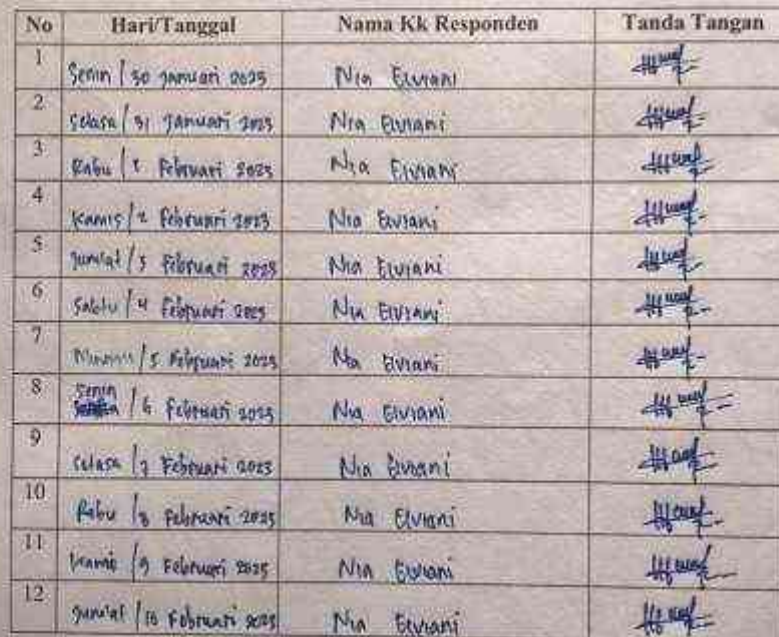 No Hari/Tanggal Nama Kk Responden Tanda Tangan
1 Senin / 30 Januari 2023 Nia Elviani
2 Selasa / 31 Januari 2023 Nia Elviani
3 Rabu / 1 Februari 2023 Nia Elviani
4 Kamis / 2 Februari 2023 Nia Elviani
5 Jum'at / 3 Februari 2023 Nia Elviani
6 Sabtu / 4 Februari 2023 Nia Elviani
7 Minggu / 5 Februari 2023 Nia Elviani
8 Senin / 6 Februari 2023 Nia Elviani
9 Selasa / 7 Februari 2023 Nia Elviani
10 Rabu / 8 Februari 2023 Nia Elviani
11 Kamis / 9 Februari 2023 Nia Elviani
12 Jum'at / 10 Februari 2023 Nia Elviani